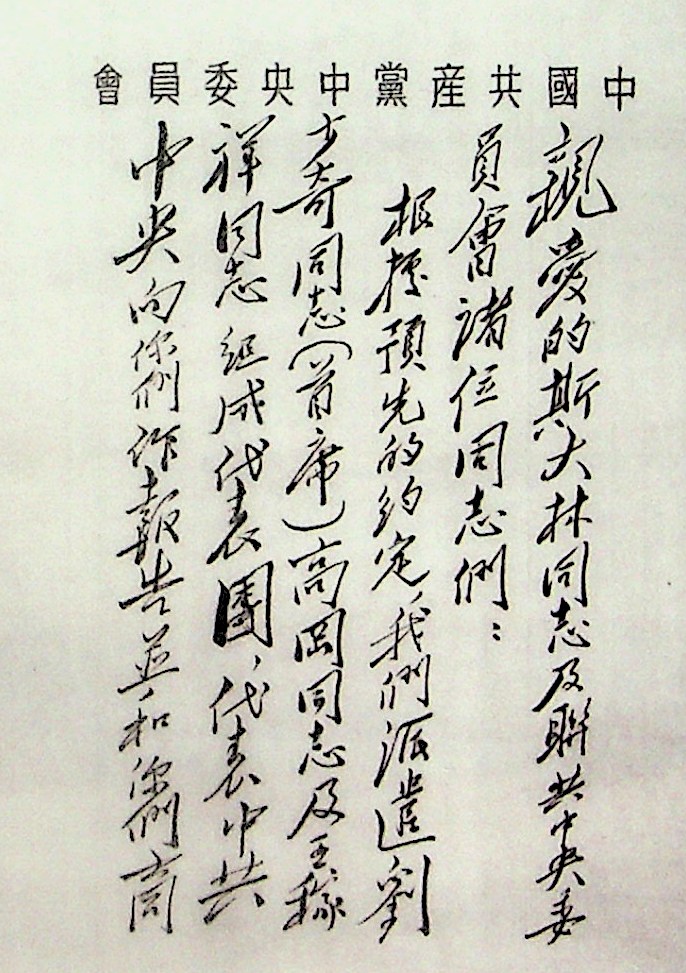 中國共産黨中央委員會
親愛的斯大林同志及聯共中央委
員會諸位同志們：
根據預先的約定，我們派遣劉
少奇同志（首席）高岡同志及王稼
祥同志組成代表團，代表中共
中央向你們作報告並和你們商